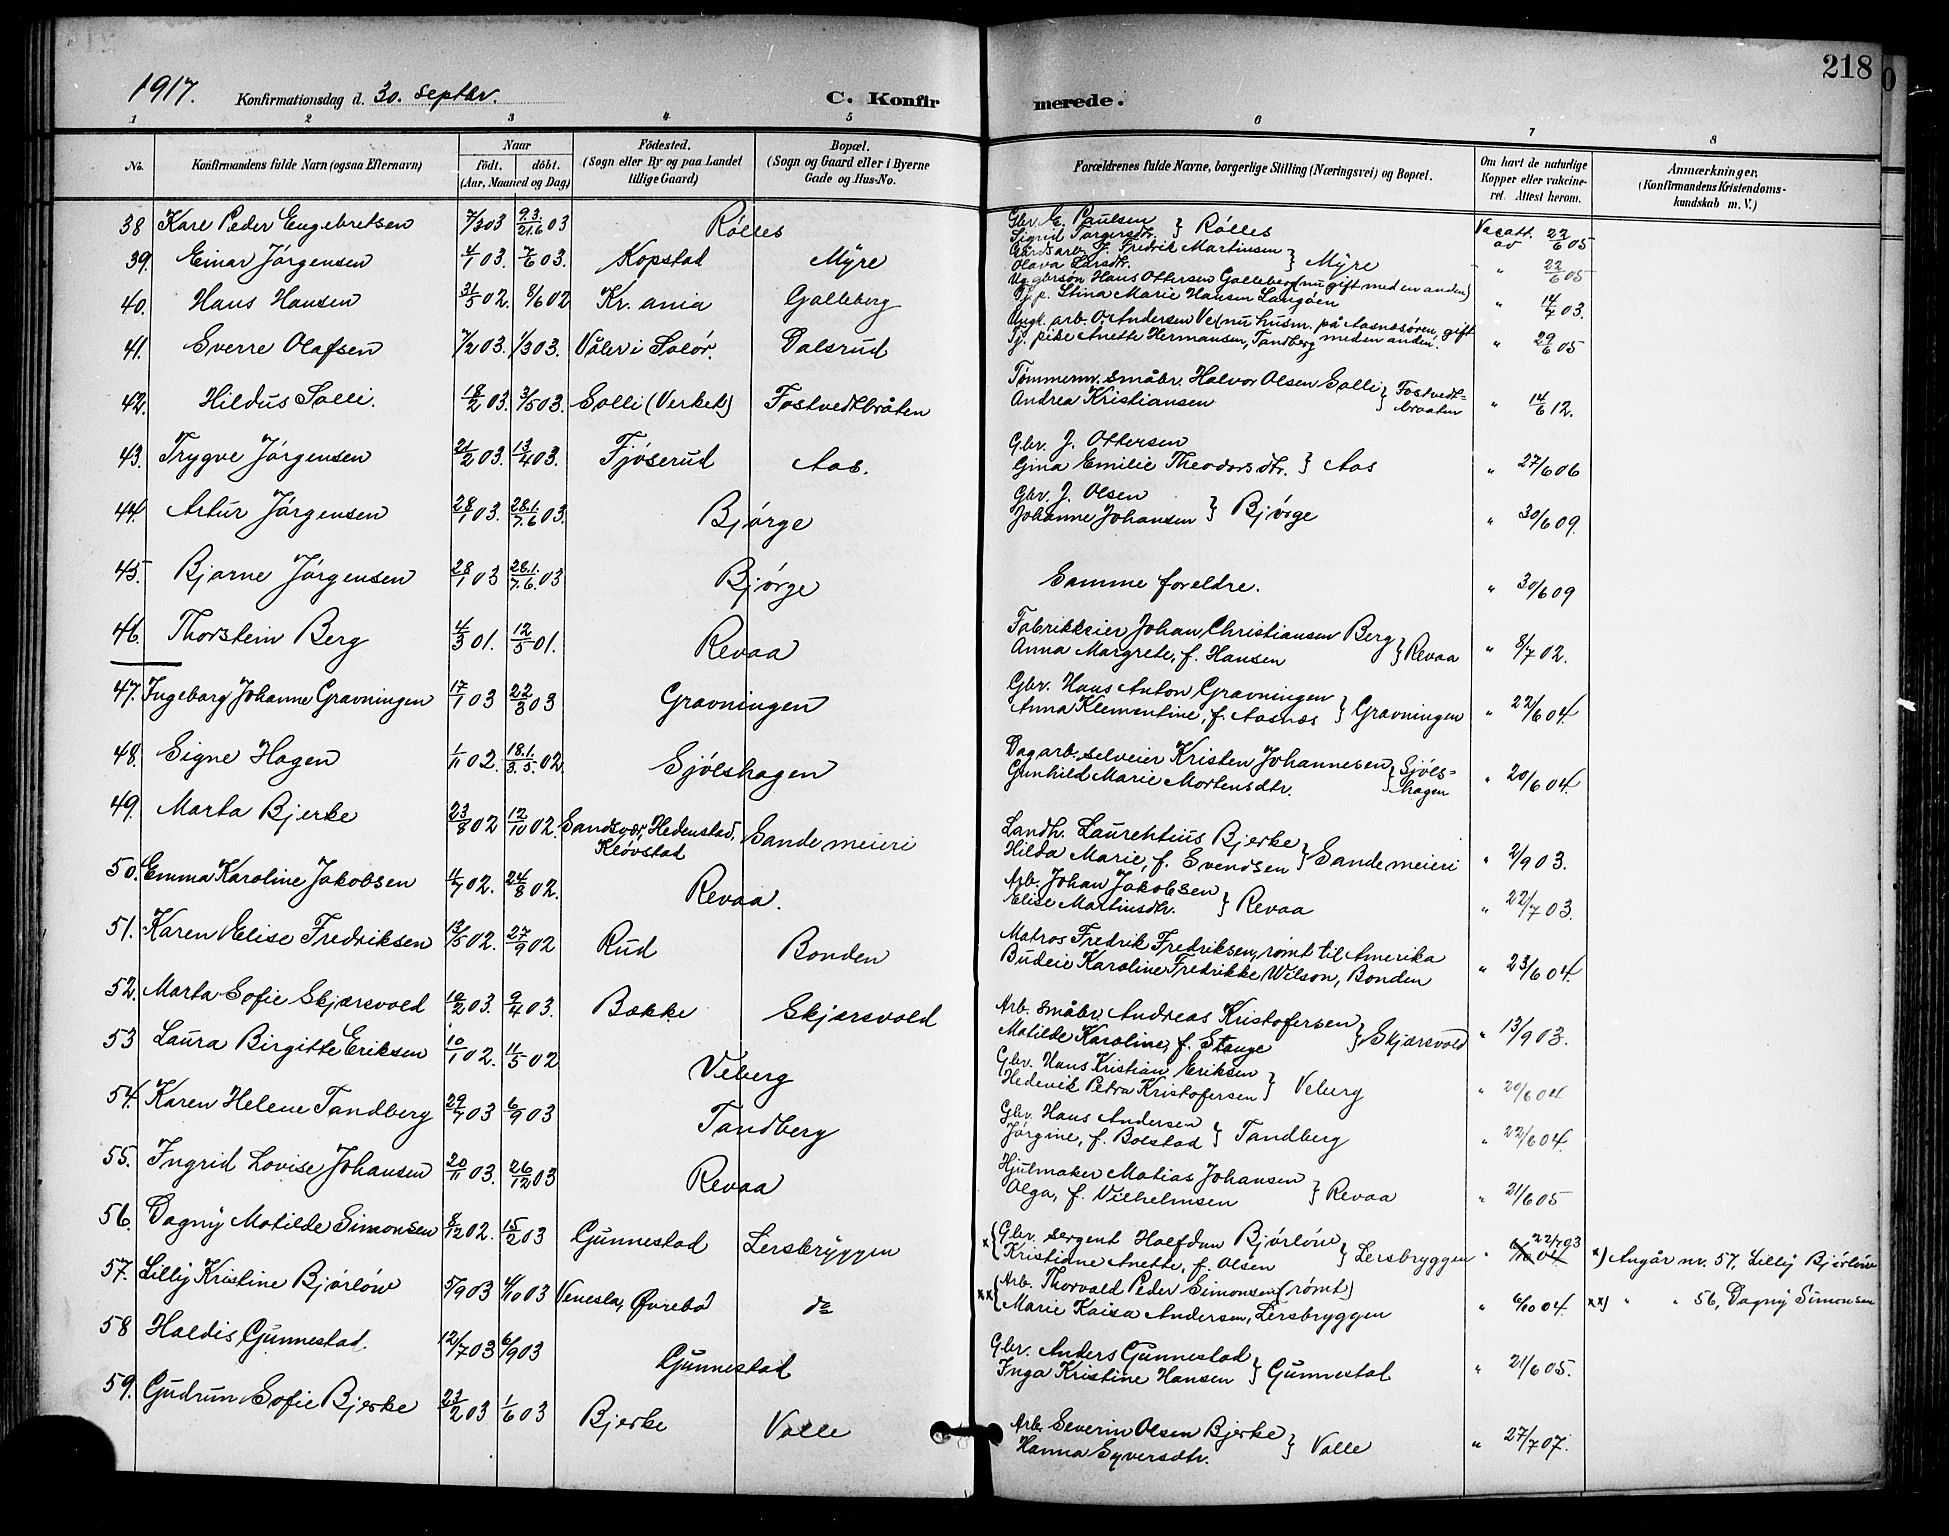 218
1917. Konfirmationsdag d. 30. Septbr. C. Konfirmerede.
1 2 3 4 5 6 7 8
No. Konfirmandens fulde Navn (ogsaa Efternavn) Naar født. døbt. (Aar, Maaned og Dag) Födested. (Sogn eller By og paa Landet tillige Gaard) Bopæl. (Sogn og Gaard eller i Byerne Gade og Hus-No. Forældrenes fulde Navne, borgerlige Stilling (Næringsvei) og Bopæl. Om havt de naturlige Kopper eller vakcineret. Attest herom. Anmærkninger. (Konfirmandens Kristendomskundskab m. V.)
38 Kare Peder Engebretsen 7/3 03 9.3./21.6 03 Rölles Gbr. E. Paulsen Sigrid Torgersdtr. } Rölles Vacatt. av 22/6 05
39. Einar Jörgensen 4/1 03. 7/6 03. Kopstad Myre Gårdsarb. J. Fredrik Martinsen Olava Larsdtr. } Myre " 22/6 05
40. Hans Hansen 31/5 02. 8/6 02 Kr.ania Galleberg Ug. gbrsøn Hans Ottersen Galleberg (nu gift med en anden) Tj. p. Stina Marie Hansen Langöen " 14/7 03.
41. Sverre Olafsen 7/2 03. 1/3 03. Våler i Solör. Dalsrud Ungk. arb. O. Andersen Ve (nu husm. på Aasnesören, gift med en anden. Tj. pike Anette Hermansen, Tandberg " 29/6 05
42. Hildus Solli. 18/2 03. 3/5 03. Solli (Verket) Fostvedtbråten Tømmerm. småbr. Halvor Olsen Solli Andrea Kristiansen } Fostvedtbraaten " 14/6 12.
43. Trygve Jörgensen 21/2 03. 13/4 03. Fjöserud Aas. Gbr. J. Ottersen Gina Emilie Theodorsdtr. } Aas " 27/6 06
44. Artur Jörgensen 28/1 03. 28.1./7.6 03. Bjørge Gbr. J. Olsen Johanne Johansen } Bjørge " 30/6 09.
45. Bjarne Jörgensen 28/1 03 28.1./7.6. 03 Bjørge Samme foreldre. " 30/6 09
46. Thorstein Berg 4/3 01. 12/5 01. Revaa Fabrikkeier Johan Christiansen Berg Anna Margrete, f. Hansen } Revaa " 8/7 02.
47. Ingeborg Johanne Gravningen 17/1 03 22/3 03 Gravningen Gbr. Hans Anton Gravningen Anna Klementine, f. Aasnæs } Gravningen " 22/6 04.
48. Signe Hagen 1/11 02. 18.1./3.5. 02 Sjölshagen Dagarb. selveier Kristen Johannesen Gunhild Marie Mortensdtr. } Sjölshagen " 20/6 04.
49. Marta Bjerke 23/8 02 12/10 02. Sandsvær, Hedenstad, Klövstad Sande meieri Landh. Laurentius Bjerke Hilda Marie, f. Svendsen } Sande meieri " 2/9 03.
50. Emma Karoline Jakobsen 4/7 02. 24/8 02. Revaa. Arb. Johan Jakobsen Elise Martinsdtr. } Revaa " 22/7 03.
51. Karen Elise Fredriksen 13/5 02. 27/9 02 Rud Bonden Matros Fredrik Fredriksen, rømt til Amerika Budeie Karoline Fredrikke Wilson, Bonden " 23/6 04.
52. Marta Sofie Skjærsvold 10/2 03. 9/4 03. Bakke Skjærsvold Arb. småbr. Andreas Kristofersen Matilde Karoline, f. Stange } Skjærsvold " 13/9 03.
53 Laura Birgitte Eriksen 10/1 02. 11/5 02 Veberg Gbr. Hans Kristian Eriksen Hedevik Petra Kristofersen } Veberg " 20/6 04
54. Karen Helene Tandberg 29/7 03 6/9 03 Tandberg Gbr. Hans Andersen Jörgine, f. Bolstad } Tandberg " 22/6 04.
55. Ingrid Lovise Johansen 20/11 03. 26/12 03 Revaa Hjulmaker Matias Johansen Olga, f. Vilhelmsen } Revaa " 21/6 05
56. Dagny Matilde Simonsen 8/12 02. 15/2 03 Gunnestad Lersbryggen x { Gbr. sergent Halfdan Bjørløw Kristiane Anette, f. Olsen } Lersbryggen " 22/7 03 x) Angår nr. 57, Lilly Bjørløw
57. Lilly Kristine Bjørløw 5/9 03 4/10 03 Venesla, Øvrebö do xx { Arb. Thorvald Peder Simonsen (rømt) Marie Kaisa Andersen, Lersbryggen " 6/10 04. xx) " " 56, Dagny Simonsen
58 Haldis Gunnestad. 12/7 03 6/9 03 Gunnestad Gbr. Anders Gunnestad Inga Kristine Hansen } Gunnestad " 21/6 05.
59. Gudrun Sofie Bjerke 23/2 03 1/6 03 Bjerke Valle Arb. Severin Olsen Bjerke Hanna Syversdtr. } Valle " 27/7 07.